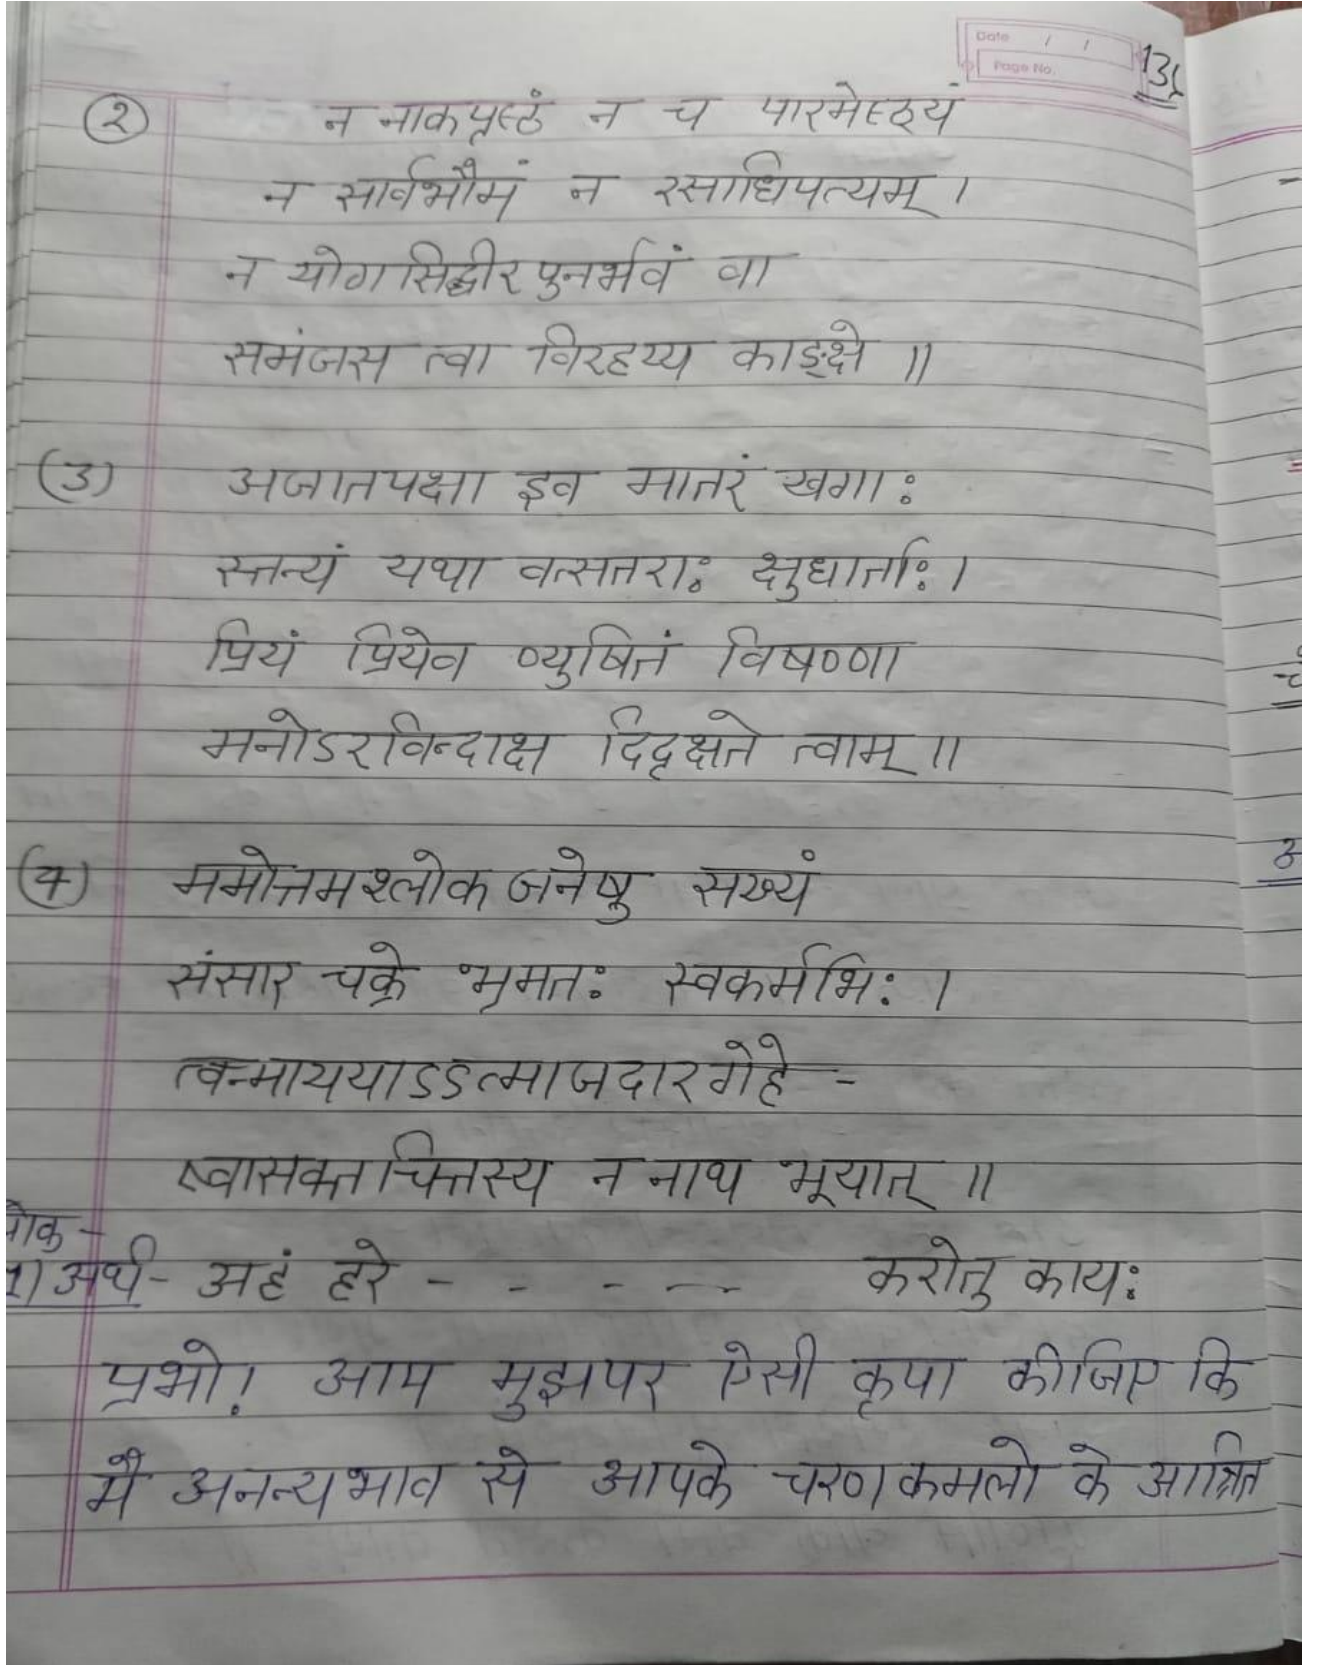 Date / /
Page No.
(२) न नाकपृष्ठं न च पारमेष्ठ्यं
न सार्वभौमं न रसाधिपत्यम् ।
न योगसिद्धीरपुनर्भवं वा
समंजस त्वा विरहय्य काङ्क्षे ॥
(3) अजातपक्षा इव मातरं खगाः
स्तन्यं यथा वत्सतराः क्षुधार्ताः ।
प्रियं प्रियेव व्युषितं विषण्णा
मनोऽरविन्दाक्ष दिदृक्षते त्वाम् ॥
(4) ममोत्तमश्लोक जनेषु सख्यं
संसार चक्रे भ्रमतः स्वकर्मभिः ।
त्वन्माययाऽऽत्माजदारगेहे -
ष्वासक्तचित्तस्य न नाथ भूयात् ॥
1) अर्थ - अहं हरे - - - - - करोतु कायः
प्रभो! आप मुझपर ऐसी कृपा कीजिए कि
मै अनन्यभाव से आपके चरणकमलो के आश्रित